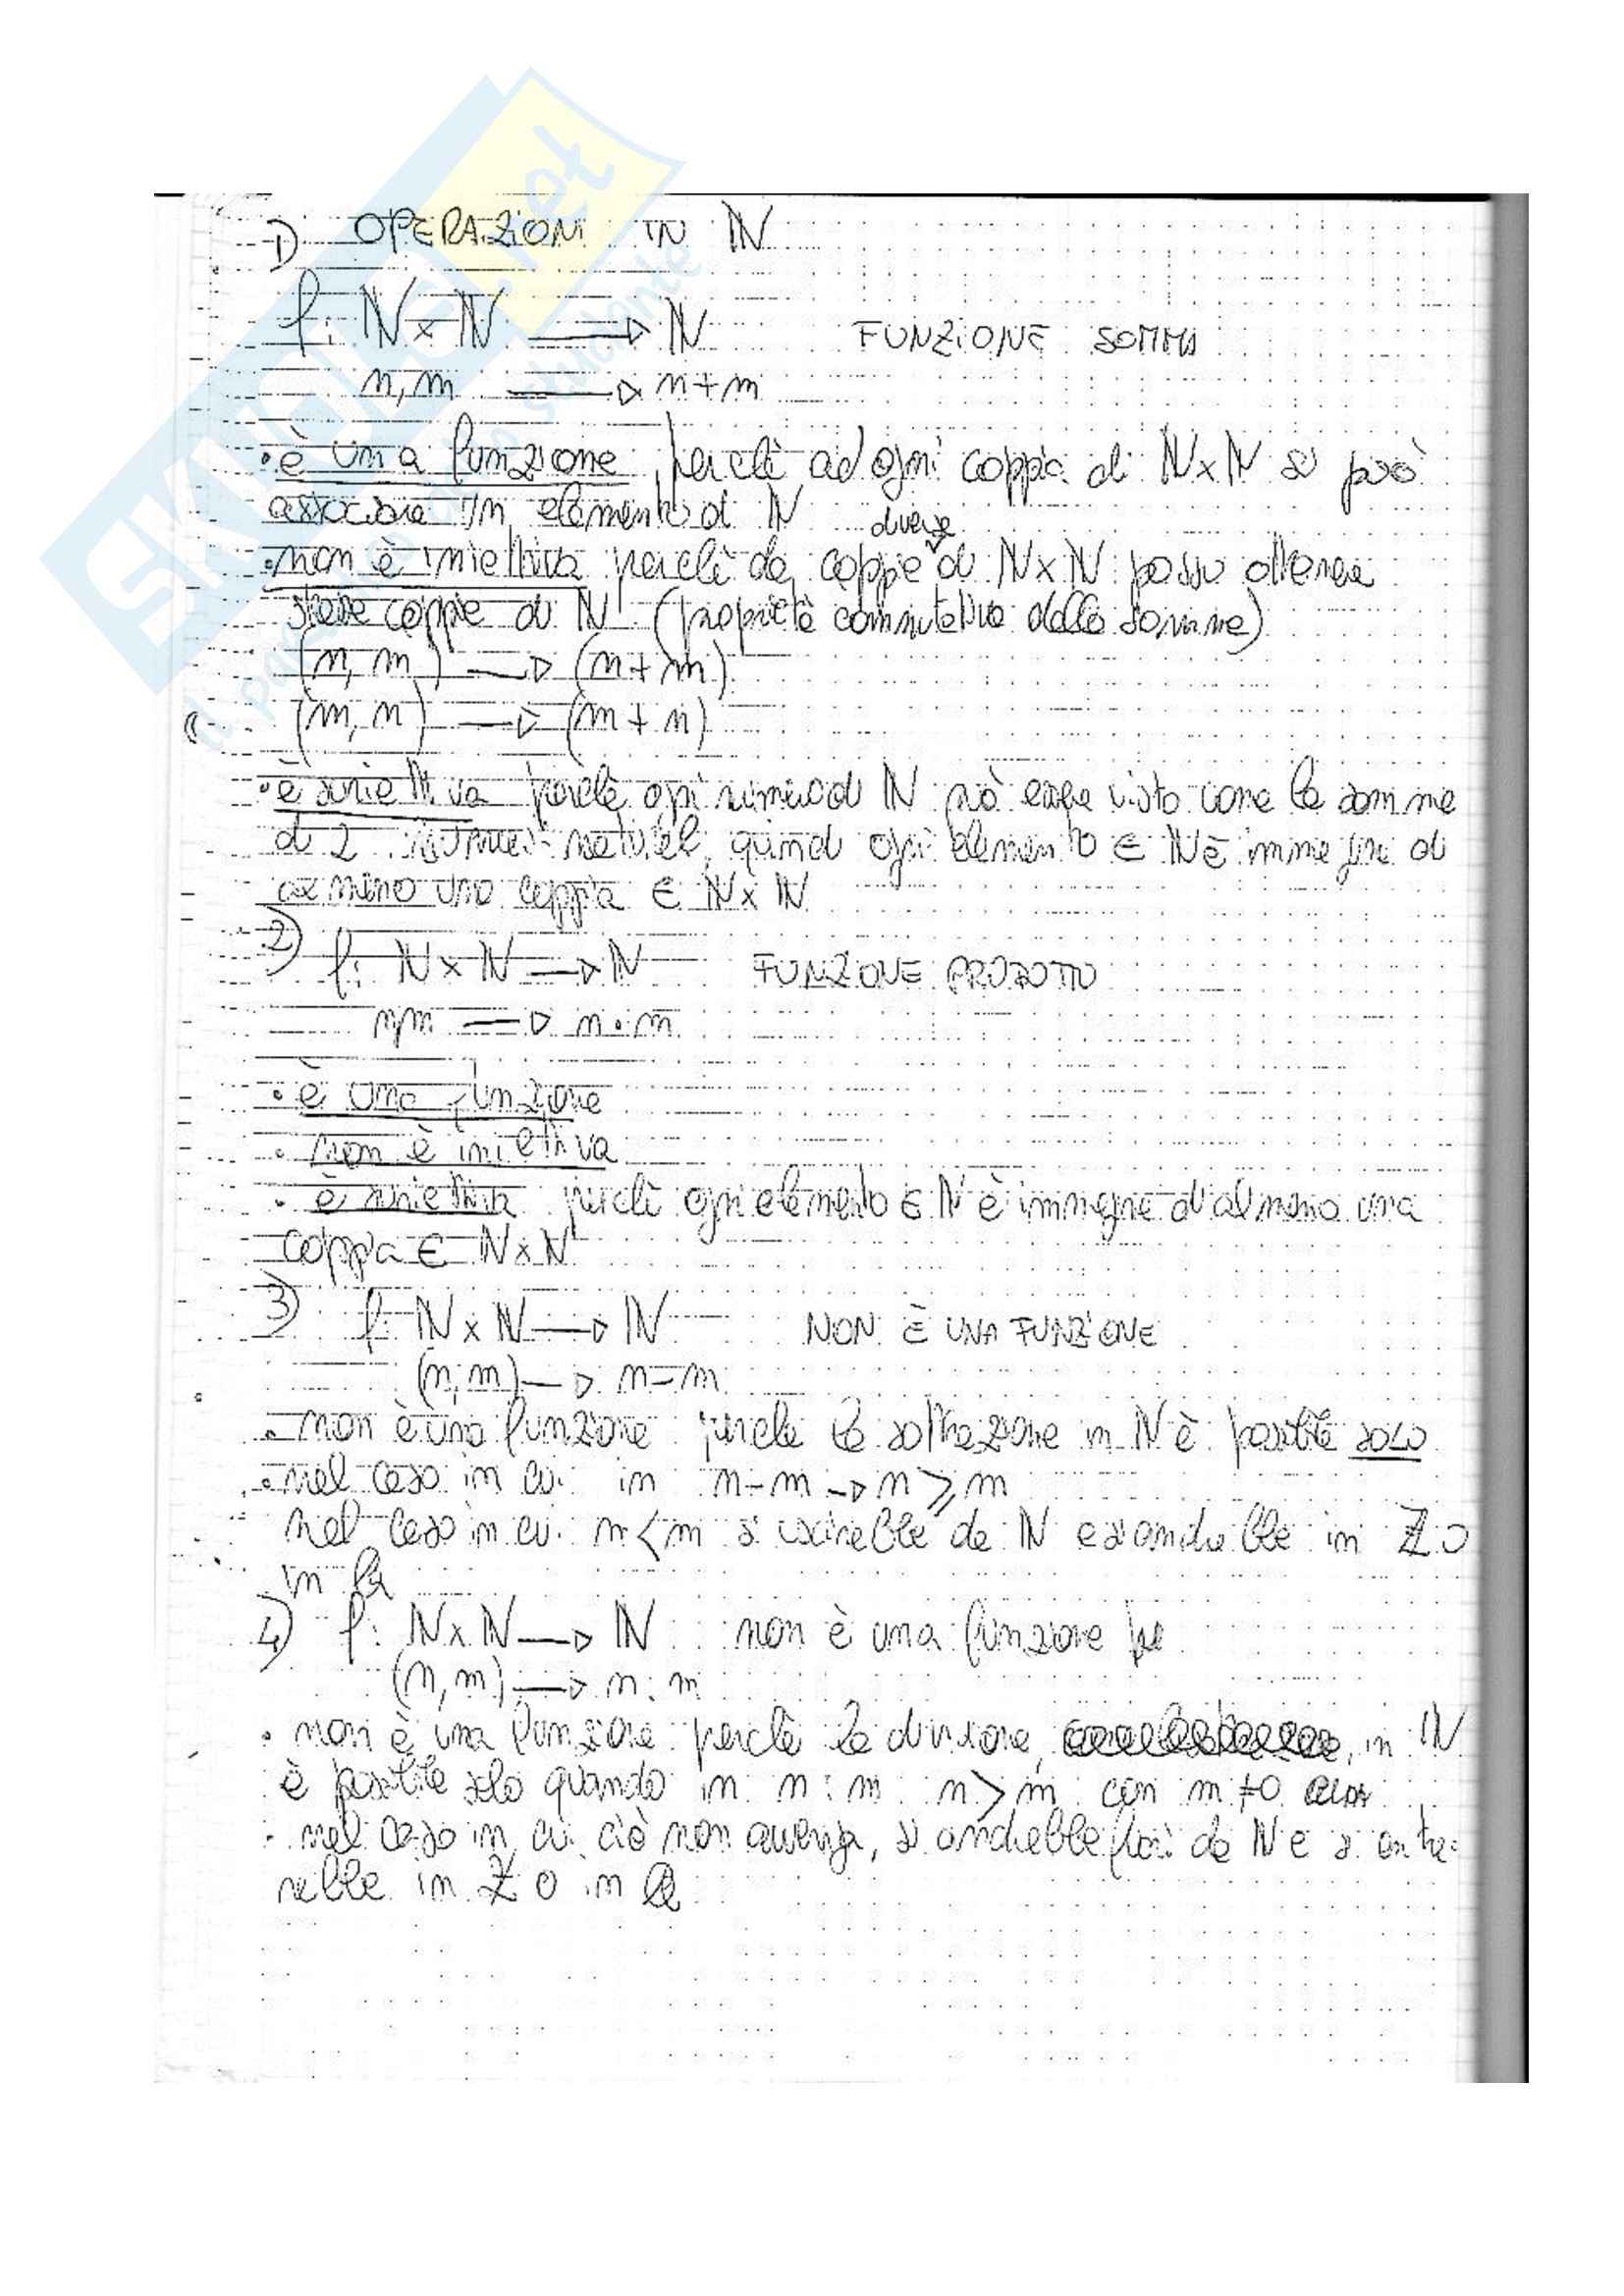 1) OPERAZIONI IN ℕ
f: ℕ×ℕ → ℕ FUNZIONE SOMMA
n,m → n+m
• è una funzione perchè ad ogni coppia di ℕ×ℕ si può
associare un elemento di ℕ
diverse
• non è iniettiva perchè da coppie di ℕ×ℕ posso ottenere
stesse coppie di ℕ (proprietà commutativa della somma)
(n, m) → (n+m)
(m, n) → (m+n)
• è suriettiva perchè ogni numero di ℕ può essere visto come la somma
di 2 numeri naturali, quindi ogni elemento ∈ ℕ è immagine di
almeno una coppia ∈ ℕ×ℕ
2) f: ℕ×ℕ → ℕ FUNZIONE PRODOTTO
n,m → n·m
• è una funzione
• non è iniettiva
• è suriettiva perchè ogni elemento ∈ ℕ è immagine di almeno una
coppia ∈ ℕ×ℕ
3) f: ℕ×ℕ → ℕ NON È UNA FUNZIONE
(n,m) → n-m
• non è una funzione perchè la sottrazione in ℕ è possibile solo
• nel caso in cui in n-m → n ⩾ m
nel caso in cui n<m si uscirebbe da ℕ e si andrebbe in ℤ o
in ℚ
4) f: ℕ×ℕ → ℕ non è una funzione pe
(n,m) → n:m
• non è una funzione perchè la divisione, in ℕ
è possibile solo quando in n:m n>m con m≠0
• nel caso in cui ciò non avvenga, si andrebbe fuori da ℕ e si entre-
rebbe in ℤ o in ℚ